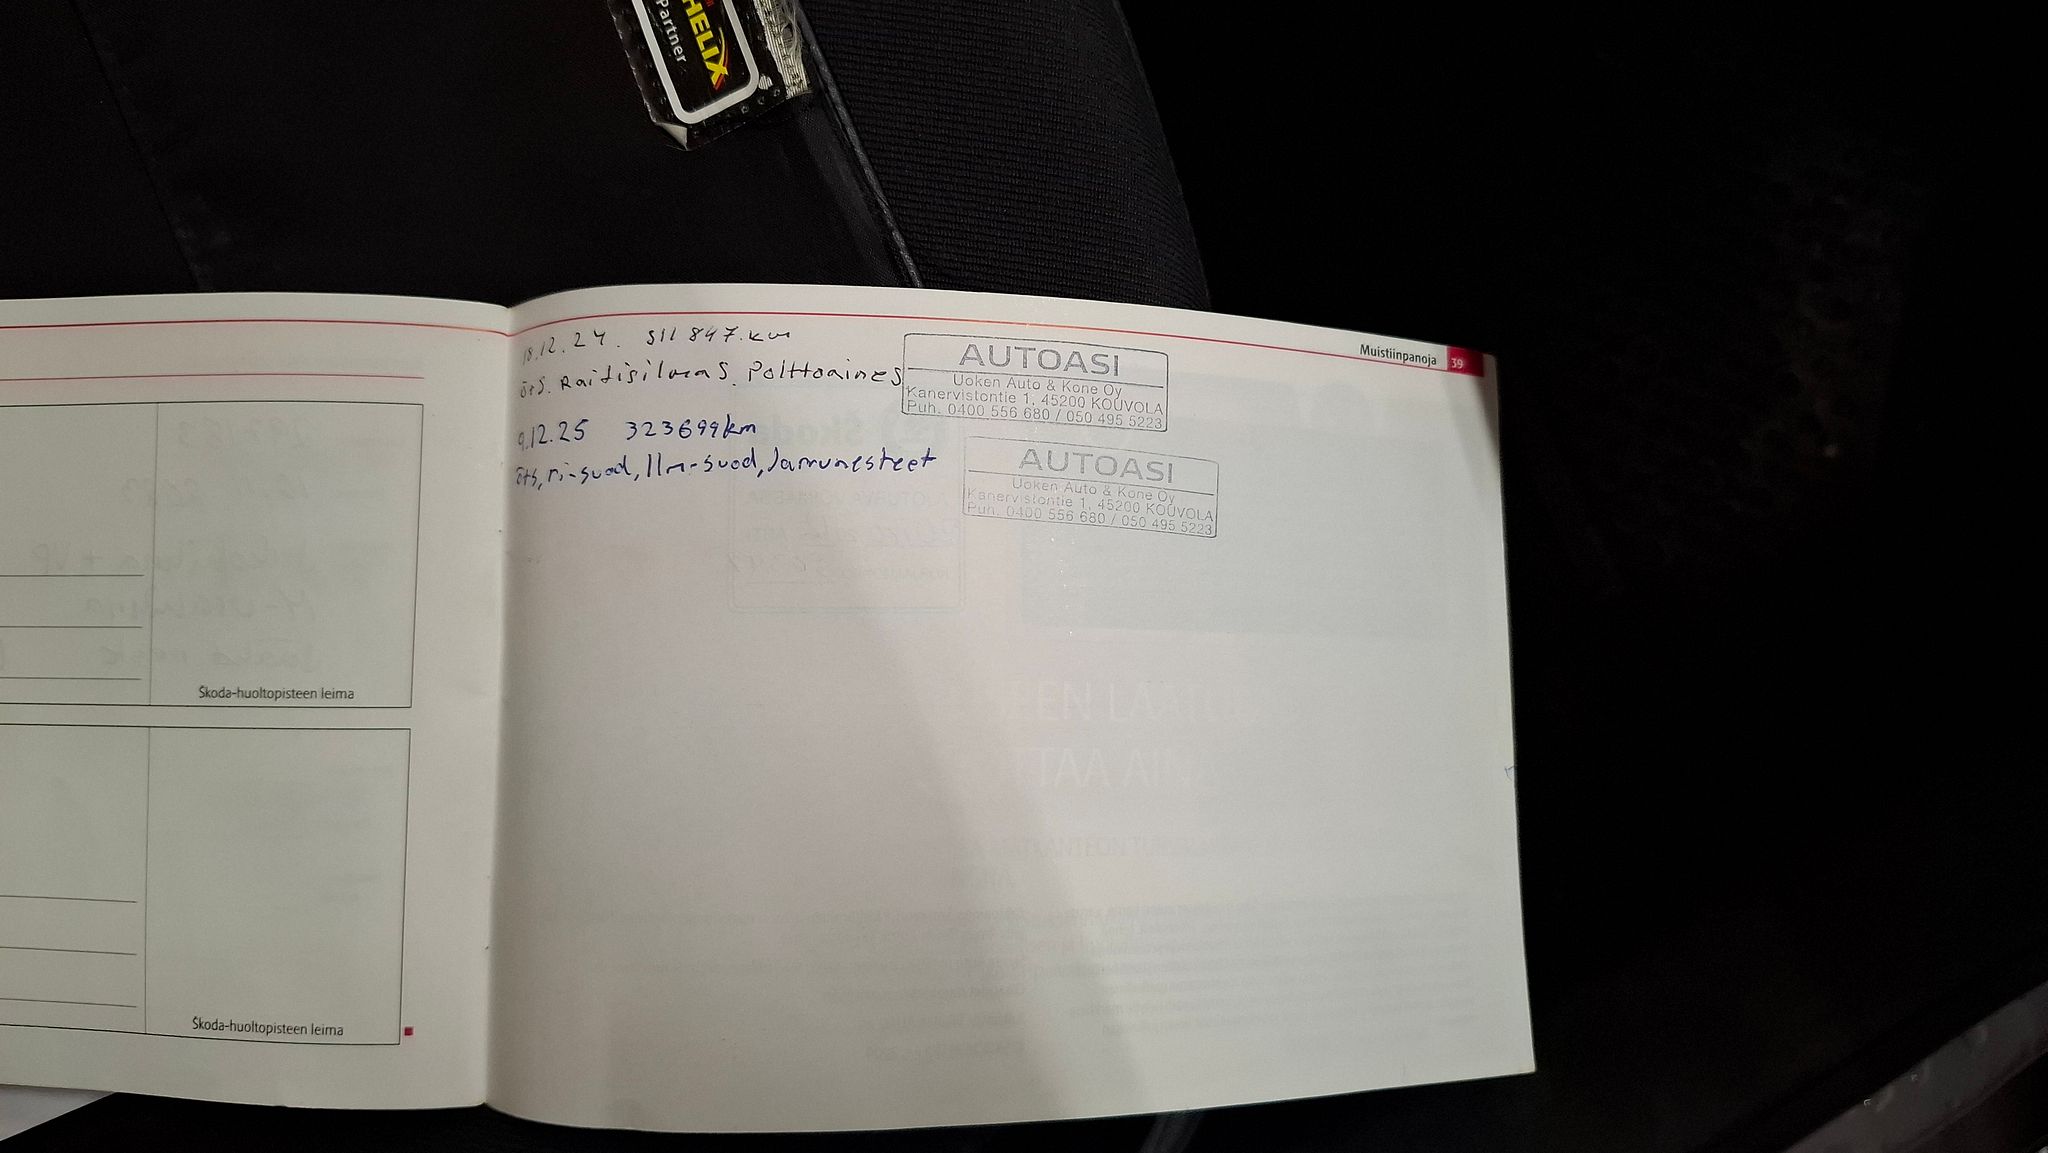 HELIX
Partner
Muistiinpanoja 39
18.12.24. 311 847.km
öts. Raitisilmas. Polttoaines
AUTOASI
Uoken Auto & Kone Oy
Kanervistontie 1, 45200 KOUVOLA
Puh. 0400 556 680 / 050 495 5223
9.12.25 323699km
öts, ri-suod, Ilm-suod, Jarrunesteet
AUTOASI
Uoken Auto & Kone Oy
Kanervistontie 1, 45200 KOUVOLA
Puh. 0400 556 680 / 050 495 5223
Škoda-huoltopisteen leima
Škoda-huoltopisteen leima